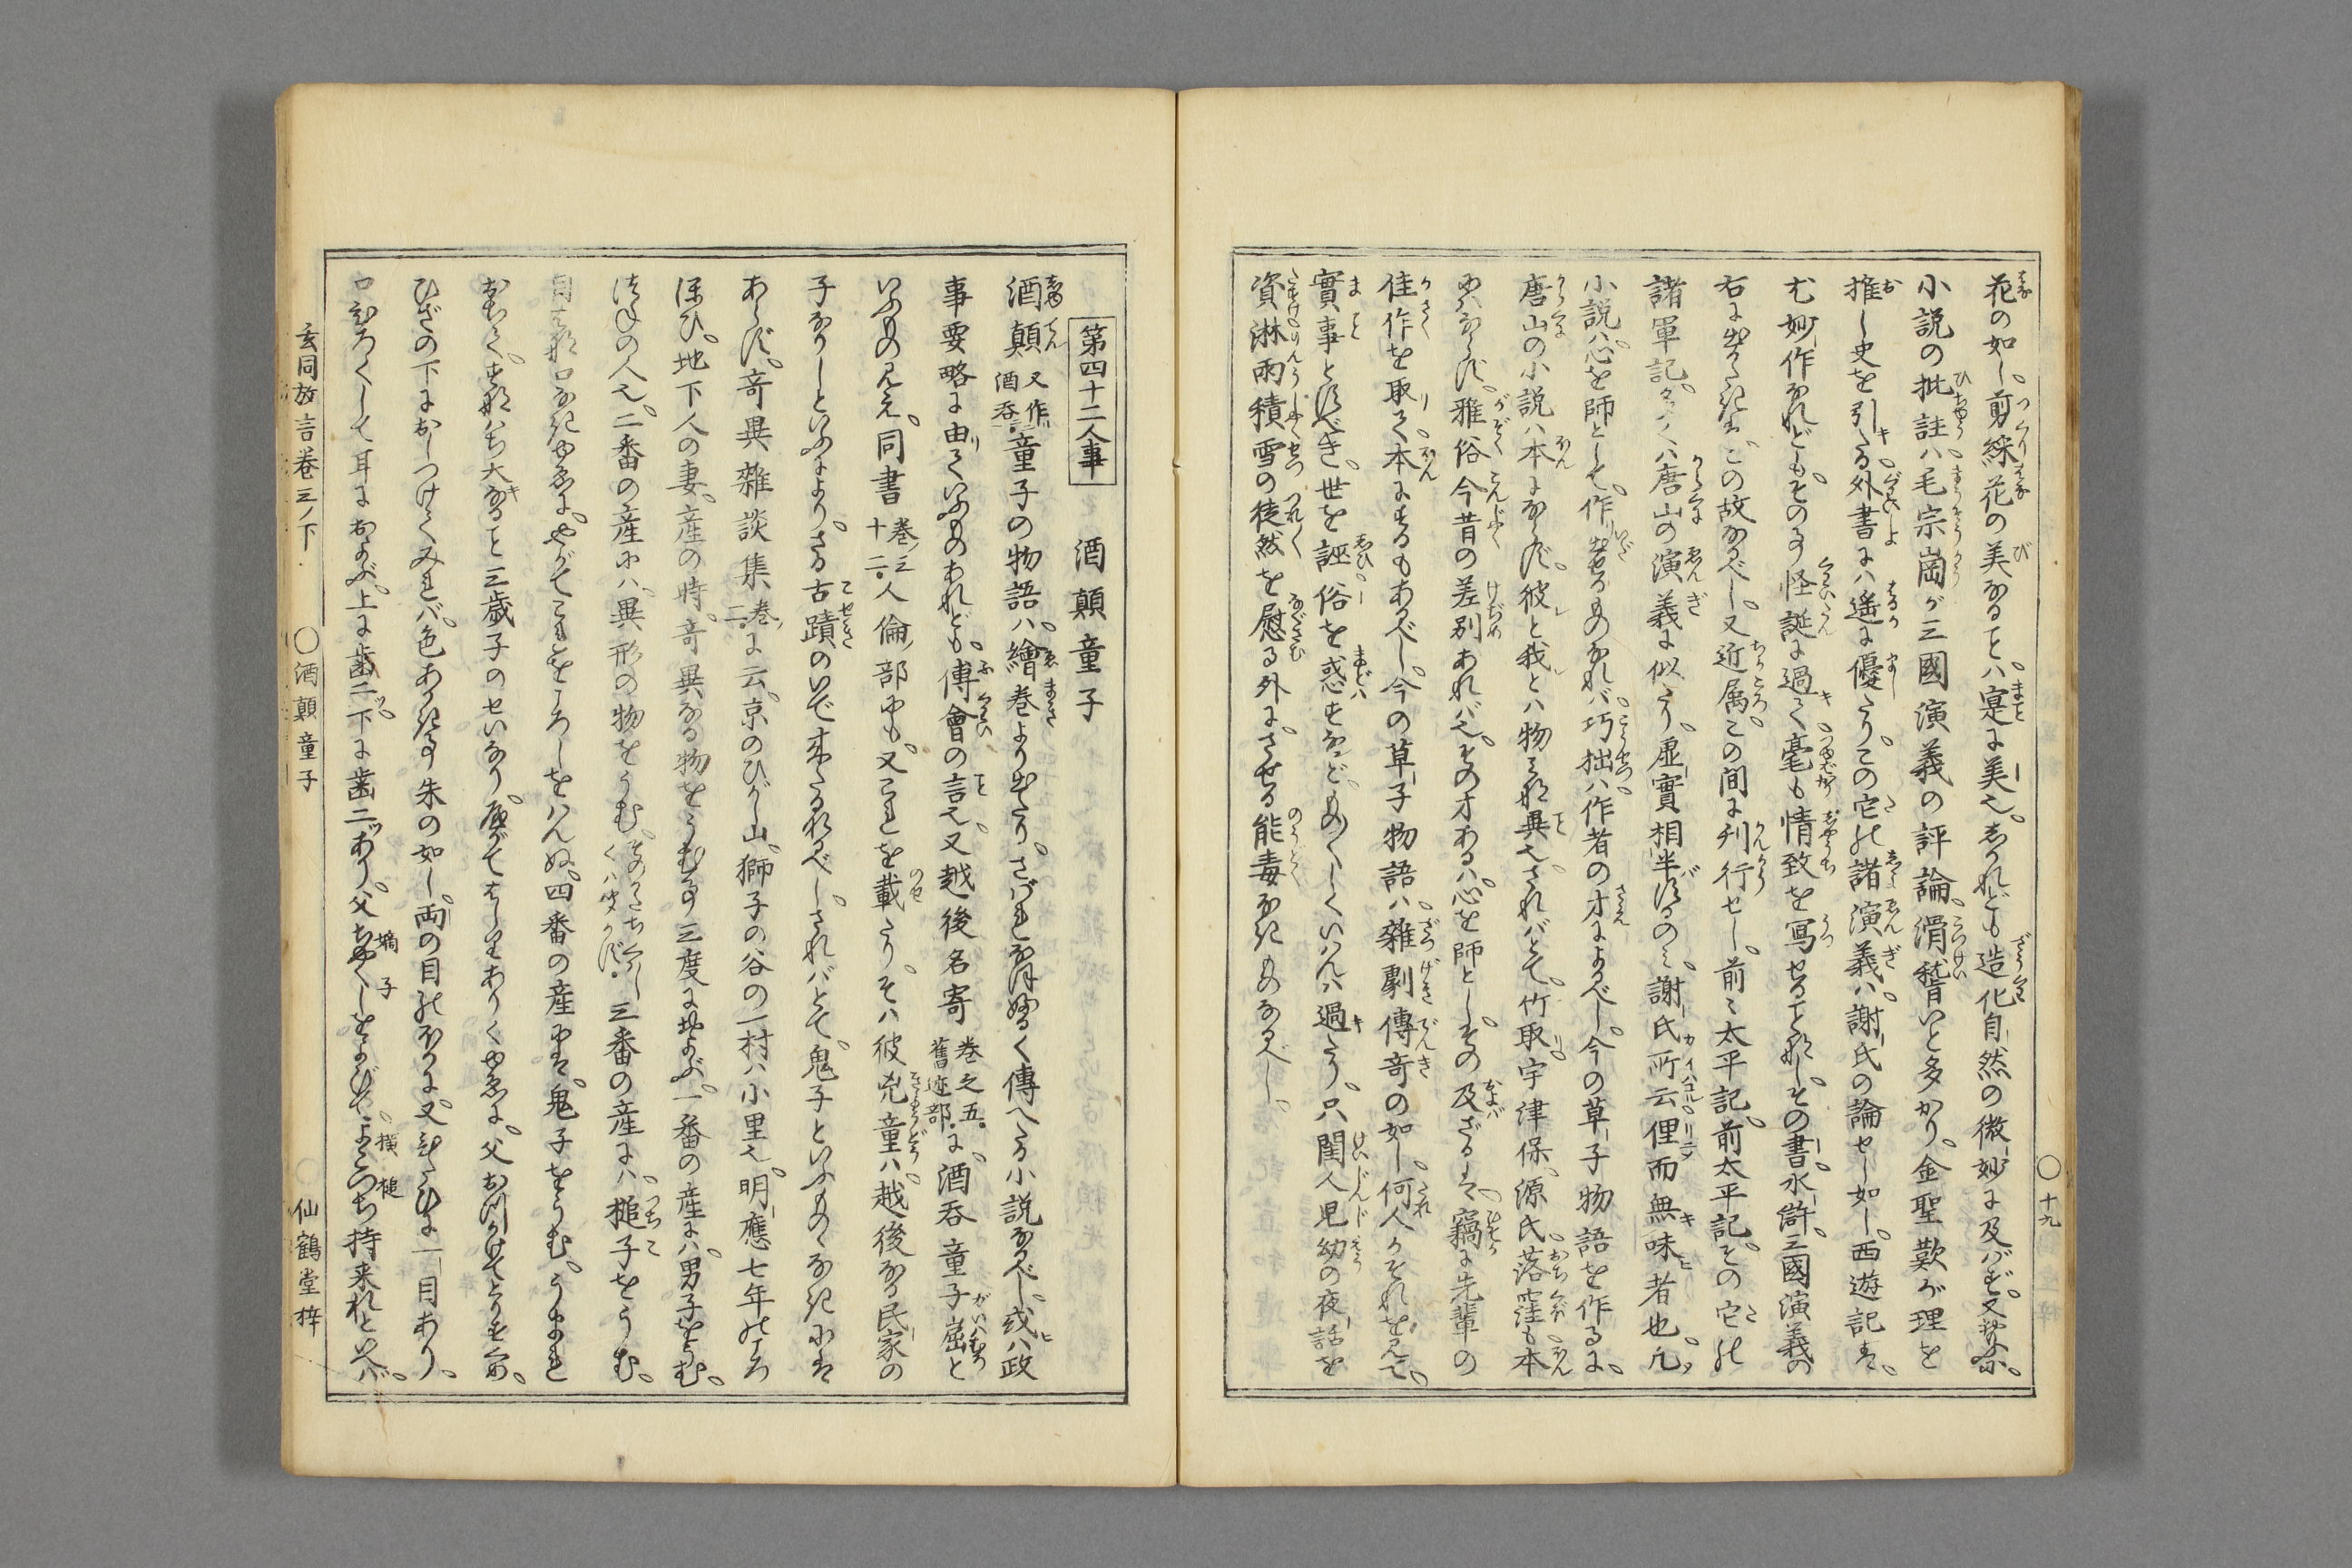 花の如し。剪綵花の美なることハ。寔に美也。しかれども造化自然の微妙に及バず。又
小説の批註ハ。毛宗崗が三國演義の評論。滑稽いと多かり。金聖歎が理を
推し史を引たる。外書にハ遙に優たり。この它の諸演義ハ。謝氏の論せし如し。西遊記は。
尤妙作なれども。その事怪誕に過て。毫も情致を寫せることなし。その書。水滸。三國演義の
右に出がたきは。この故なるべし。又近属。この間に刊行せし。前々太平記。前太平記。その它の
諸軍記。多くハ唐山の演義に似たり。虚實相半バするのミ。謝氏所云俚而無味者也。凡
小説ハ。心を師として。作り出せるものなれバ。巧拙ハ。作者の才によるべし。今の草子物語を作るに。
唐山の小説ハ本にならず。彼と我とハ物みな異也。されバとて。竹取。宇津保。源氏。落窪も本
にハならず。雅俗今昔の差別あれバ也。その才あるハ。心を師とし。その及ざるは。竊に先輩の
佳作を取て。本にするもあるべし。今の草子物語ハ。雜劇傳奇の如し。何人かそれを見て。
實事とすべき。世を誣。俗を惑すなど。ものものしくいはんハ過たり。只閨人児幼の夜話を
資。淋雨積雪の徒然を慰る外に。させる能毒なきものなるべし。
○十九
第四十二人事　酒顛童子
酒顛又作酒呑。童子の物語ハ。繪巻より出たり。さバれなほ好く傳へたる小説なるべし。或ハ政
事要略に由ていふものあれども。傅會の言也。又越後名寄巻之五。舊迹部。に。酒呑童子窟と
いふもの見え。同書巻ノ三十二。人倫ノ部にも。又これを載たり。そハ彼兇童ハ。越後なる民家の
子なりしといふにより。さる古蹟のいで來たるなるべし。されバとて。鬼子といふもの。なきには
あらず。奇異雜談集巻ノ二。に云。京のひがし山。獅子の谷の一村ハ小里也。明應七年のころ
ほひ。地下人の妻。産の時。奇異なる物をうむ事三度に及ぶ。一番の産にハ。男子をうむ。
つねの人也。二番の産にハ。異形の物をうむ。そのかたちくハしくハきかず。三番の産にハ。槌子をうむ。
目はな口なきゆゑに。やがてこれをころしをはんぬ。四番の産には。鬼子をうむ。うまれ
おちて。すなハち大なること三歳子のせいなり。やがてはしりありくゆゑに。父おつかけてとりすくめ。
ひざの下におしつけてみれバ。色あかき事朱の如し。両の目のほかに。又ひたひに一目あり。
口ひろくして耳におよぶ。上に歯二ツ。下に歯二ツあり。父ちやくしをよびて。嫡子横槌よこづち持来れといへバ。
玄同放言巻三ノ下　○酒顛童子　○仙鶴堂梓